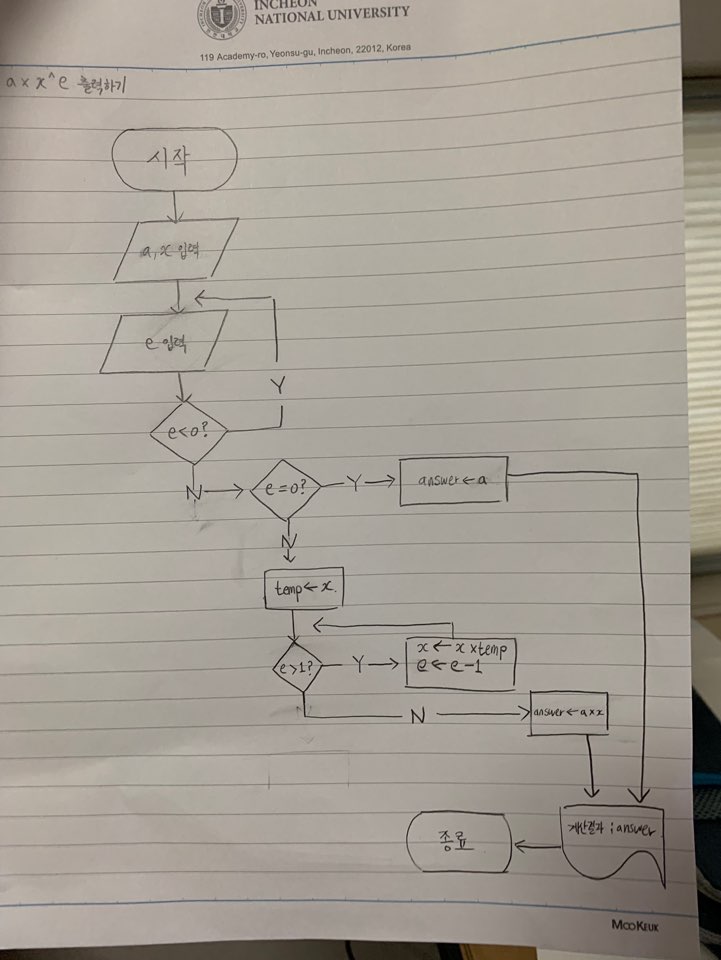 INCHEON
NATIONAL UNIVERSITY
119 Academy-ro, Yeonsu-gu, Incheon, 22012, Korea
a × x^e 출력하기
시작
a, x 입력
e 입력
Y
e<0?
N
e=0?
Y
answer ← a
N
temp ← x
e>1?
Y
x ← x × temp
e ← e-1
N
answer ← a×x
계산결과 : answer
종료
MOOKEUK